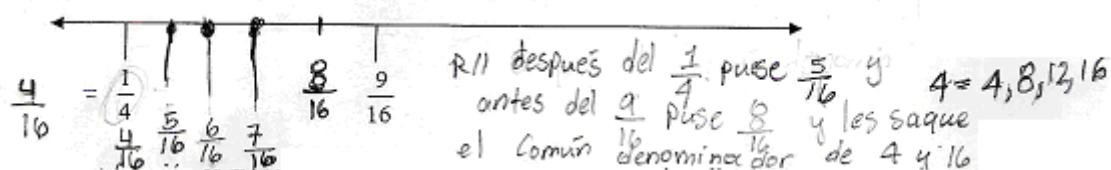 4/16 = 1/4 8/16 9/16
4/16 5/16 6/16 7/16
R// después del 1/4 puse 5/16 y
antes del 9/16 puse 8/16 y les saque
el Común denominador de 4 y 16
4 = 4, 8, 12, 16